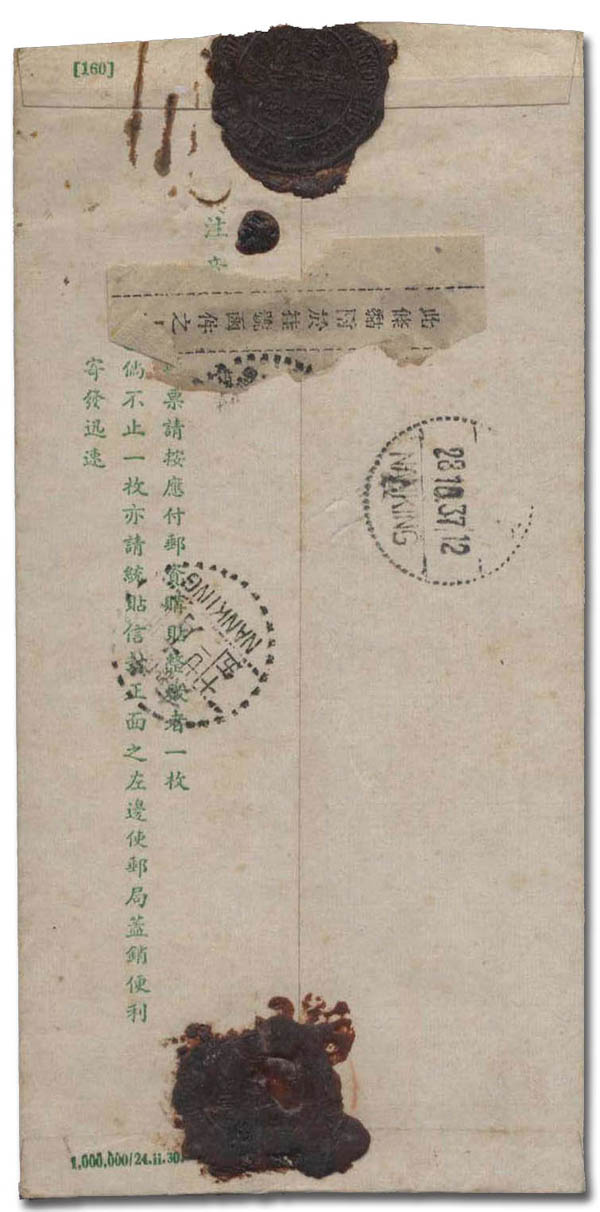 [160]
注
此條黏附於挂號函件之
票請按應付郵資購貼整數者一枚
倘不止一枚亦請統貼信封正面之左邊使郵局蓋銷便利
寄發迅速
28 10.37.12
NANKING
NANKING
1,000,000/24.11.30.